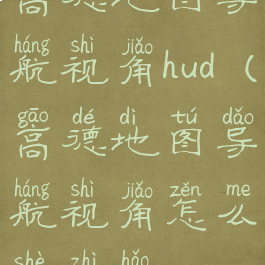 高德地图导
háng shì jiǎo
航视角hud（
gāo dé dì tú dǎo
高德地图导
háng shì jiǎo zěn me
航视角怎么
shè zhì hǎo